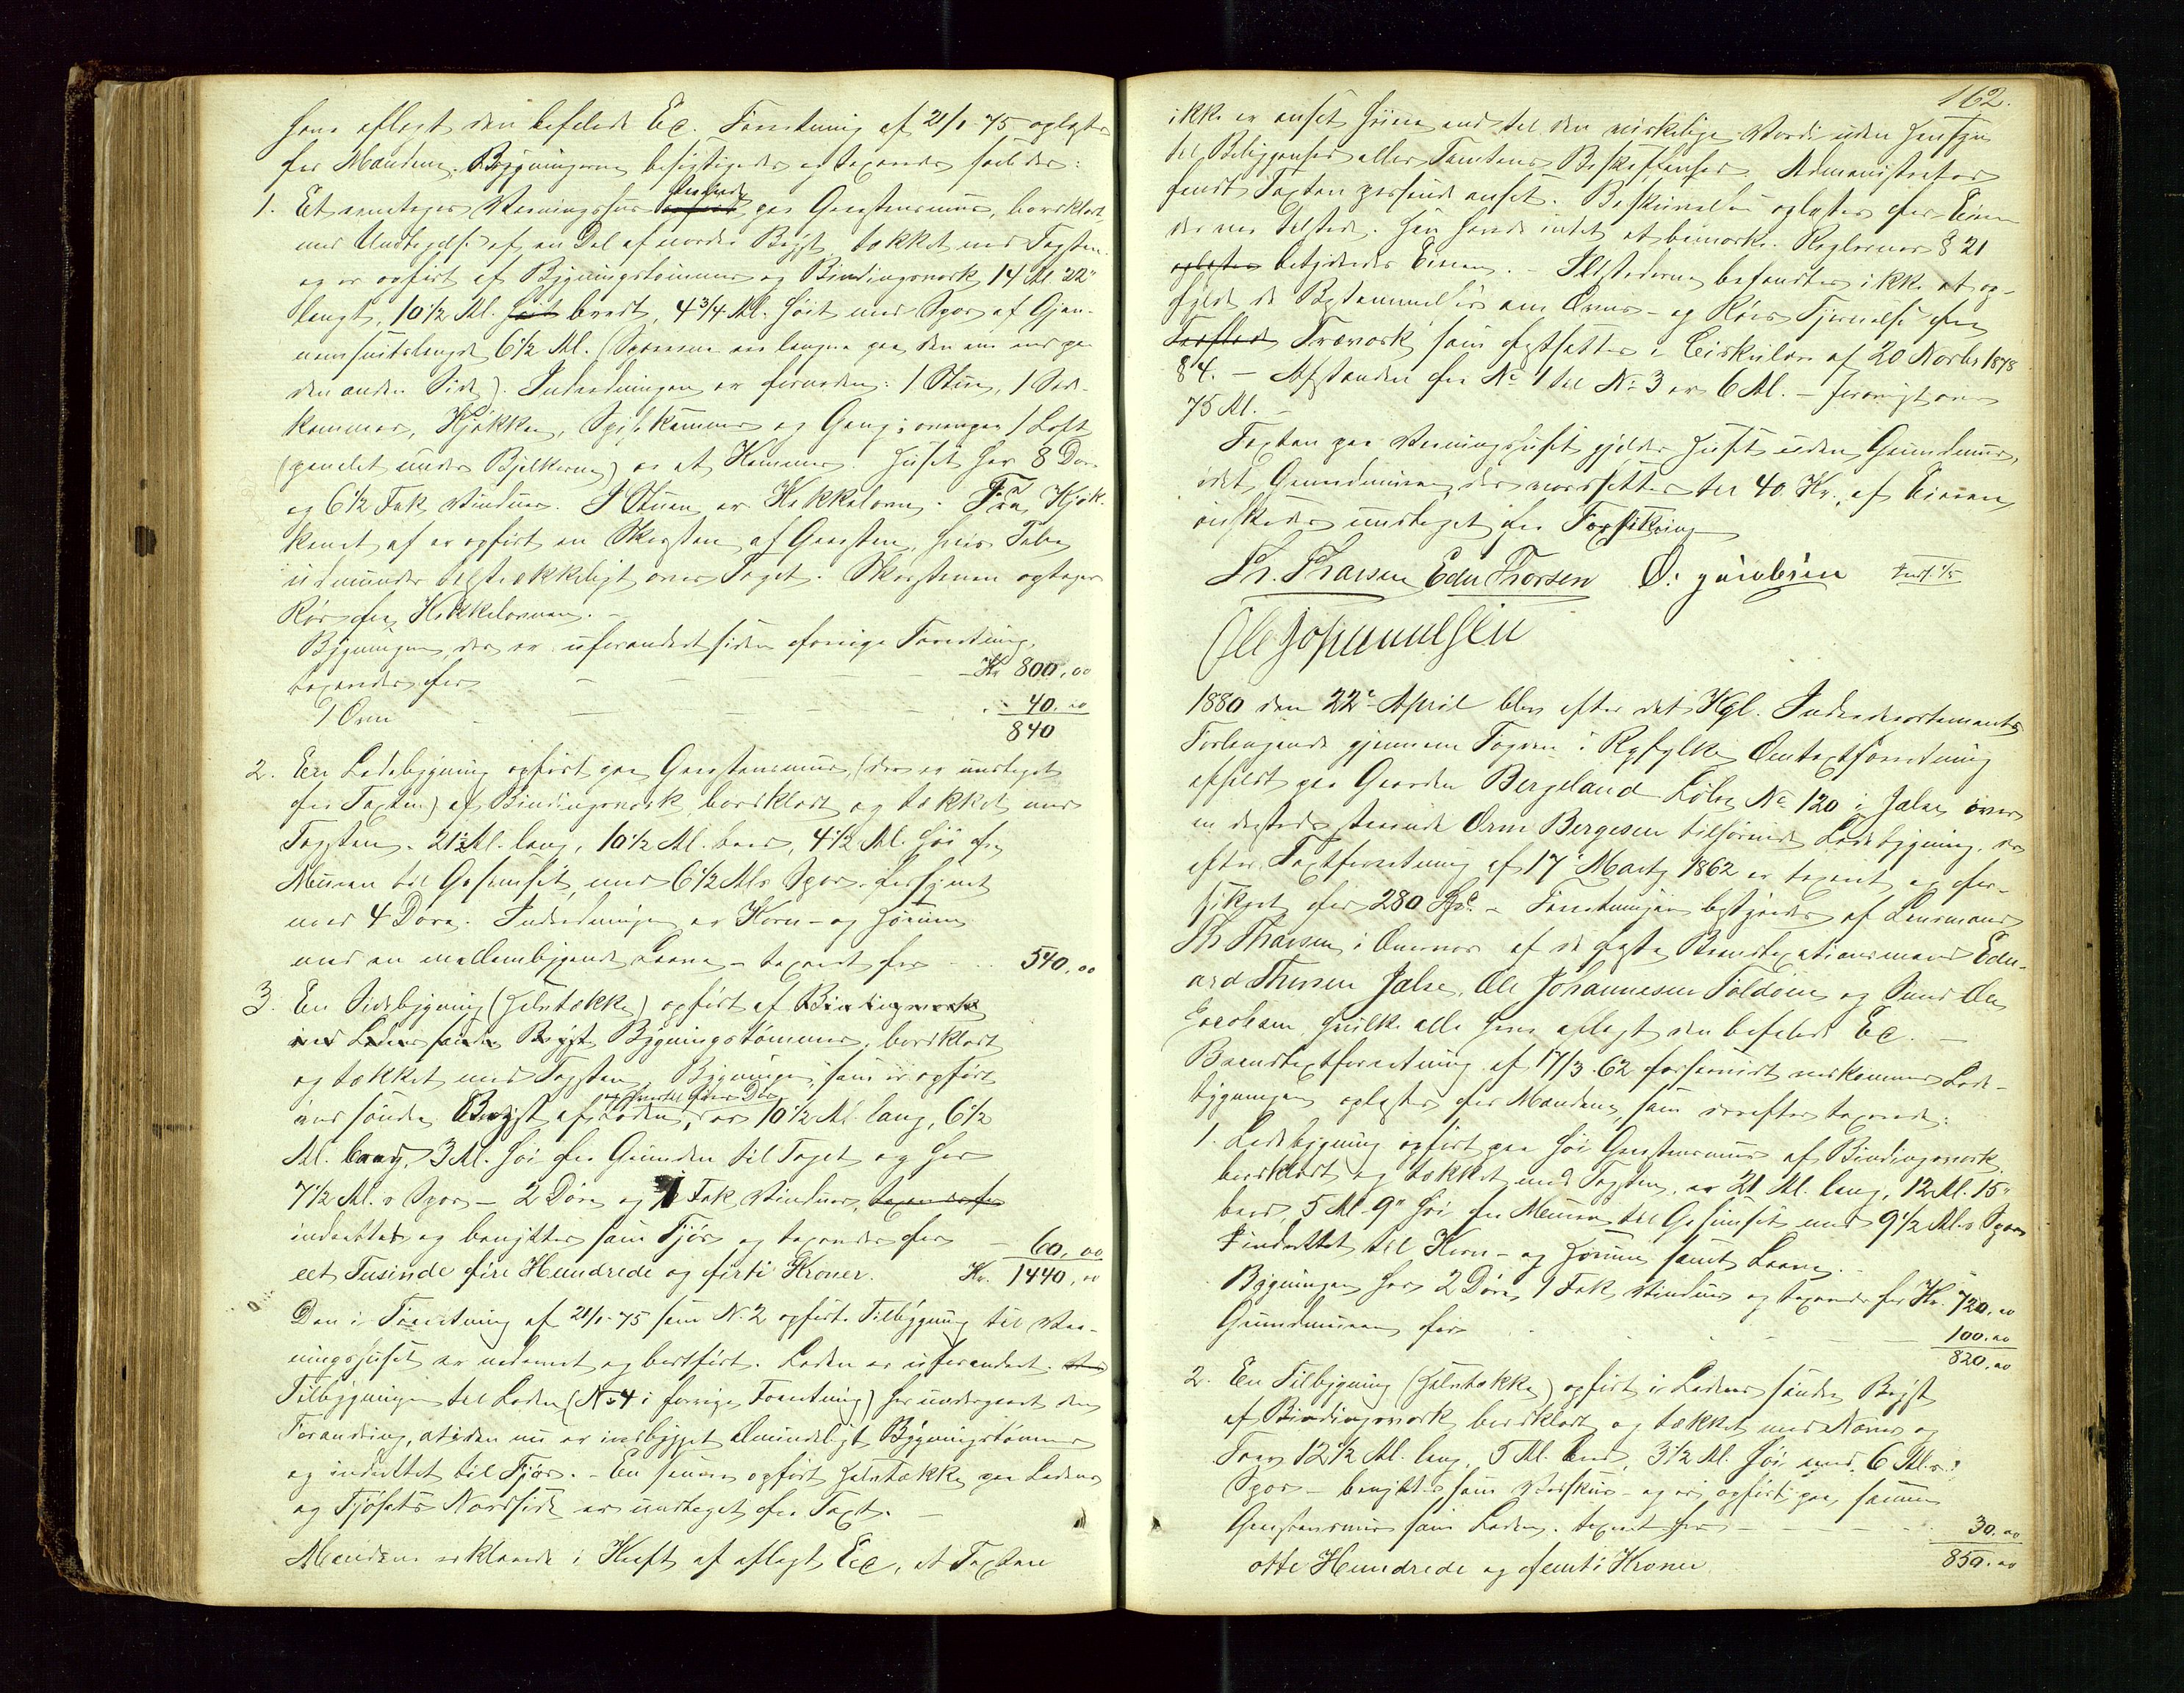 have aflagt den befalede Ed. Forretning af 21/1-75 oplæstes
for Mændene. Bygningerne besigtigedes og taxeredes saaledes:
1. Et eenetages Vaaningshus staaende paa Graastensmuur, bordklædt
med Undtagelse af en Del af nordre Bygst, tækket med Tagsten
og er opført af Bygningstømmer og Bindingsværk, 14 Al. 22"
langt, 10 1/2 Al. høit bredt, 4 3/4 Al. høit med Spær af Gjen-
nemsnitslængde 6 1/2 Al. (Spærrene ere længere paa den ene end paa
den anden Side). Indredningen er forneden: 1 Stue, 1 Sove-
kammer, Kjøkken, Spiskammer og Gang; ovenpaa 1 Loft
(panelet under Bjelkerne) og et Kammer. Huset har 8 Døre
og 6 1/2 Fak Vinduer. I Stuen er Kakkelovn. Fra Kjøk-
kenet af er opført en Skorsten af Graasten, hvis Pibe
udmunder tilstrækkeligt over Taget. Skorstenen optager
Rør fra Kakkelovnen. -
Bygningen, der er uforandret siden forrige Forretning,
taxeredes for - - - - Kr 800,00
1 Ovn - - - - " 40.00
840
2. En Ladebygning opført paa Graastensmuur, (der er undtaget
fra Taxten) af Bindingsværk, bordklædt og tækket med
Tagsten. 21 1/2 Al. lang, 10 1/2 Al. bred, 4 1/2 Al. høi fra
Muren til Gesimset, med 6 1/2 Als Spær. forsynet
med 4 Døre. Indredningen er Korn- og Hørum
med en mellembyggende Laave - taxeret for - 540,00
3. En Sidebygning (Halvtække) opført af Bindingsværk
ved Ladens søndre Bygst Bygningstømmer, bordklædt
og tækket med Tagsten. Bygningen, som er opført
ved søndre Bygst af Laden, er 10 1/2 Al. lang, 6 1/2
Al. bred, 3 Al. høi fra Grunden til Taget og har
7 1/2 Al. s Spær - 2 Døre og 1 Fak Vinduer, taxeredes for
indrettet og benyttes som Fjøs og taxeredes for - 60,00
eet Tusinde fire Hundrede og firti Kroner. Kr. 1440,00
Den i Forretning af 21/1-75 som No 2 opførte Tilbygning til Vaa-
ningshuset er nedrevet og bortført. Laden er uforandret.
Tilbygningen til Laden (No 4 i forrige Forretning) har undergaaet den
Forandring, at i den nu er indbygget Almindeligt Bygningstømmer
og indrettet til Fjøs. - En senere opført Halvtække paa Ladens
og Fjøsets Nordside er undtaget fra Taxt. -
Mændene erklærede i Kraft af aflagt Ed, at Taxten
162.
ikke er ansat høiere end til den virkelige Værdi uden Hensyn
til Beliggenhed eller Tomtens Beskaffenhed. Administrator
fandt Taxten passende ansat. Beskrivelsen oplæstes for Eieren
der var tilstede. Han havde intet at bemærke. Reglernes § 21
oplæstes betydedes Eieren. Ildstederne befandtes ikke at op-
fylde de Bestemmelser om Ovns- og Rørs Fjernelse fra
Træværk som fastsættes i Cirkulære af 20 Novbr 1878
§ 4. - Afstanden fra No 1 til No 3 er 6 Al. - forøvrigt over
75 Al. -
Taxten paa Vaaningshuset gjelder Huset uden Grundmuur,
idet Grundmuren, der værdsættes til 40 Kr., af Eieren
ønskedes undtaget fra Forsikring
Th. Thorsen Edu Thorsen O: Jacobsen Indf. 1/5
Ole Johannessen
1880 den 22de April blev efter det Kgl. Indredepartements
Forlangende gjennem Fogden i Ryfylke Omtaxtforretning
afholdt paa Gaarden Bergeland Løbe No 120 i Jælsø over
en dersteds staaende Orm Bergesen tilhørende Ladebygning, der
efter Taxtforretning af 17de Marts 1862 er taxeret og for-
sikret for 280 Spd. - Forretningen bestyredes af Lensmand
Th Thorsen i Overvær af de faste Brandtaxationsmænd Edu-
ard Thorsen Jælse, Ole Johannesen Foldøen og Svend Ole
Jacobsen, hvilke alle have aflagt den befalede Ed. -
Brandtaxtforretning af 17/3-62 forsaavidt vedkommer Lade-
bygningen oplæstes for Mændene, som derefter taxerede:
1. Ladebygning opført paa høi Graastensmuur af Bindingsværk
bordklædt og tækket med Tagsten, er 21 Al. lang, 12 Al. 15"
bred, 5 Al. 9" høi fra Muren til Gesimset med 9 1/2 Al. s Spær
indrettet til Korn- og Hørum samt Laave. -
Bygningen har 2 Døre, 1 Fak Vinduer og taxeredes for Kr. 720.00
Grundmuren for - - - 100.00
820.00
2. En Tilbygning (Halvtække) opført i Ladens søndre Bygst
af Bindingsværk bordklædt og tækket med Næver og
Torv 12 1/2 Al. lang, 5 Al. bred, 3 1/2 Al. høi med 6 Al. s
Spær - benyttes som Vedskur - og er opført paa samme
Graastensmuur som Laden. taxeret for - - - 30.00
otte Hundrede og femti Kroner 850.00